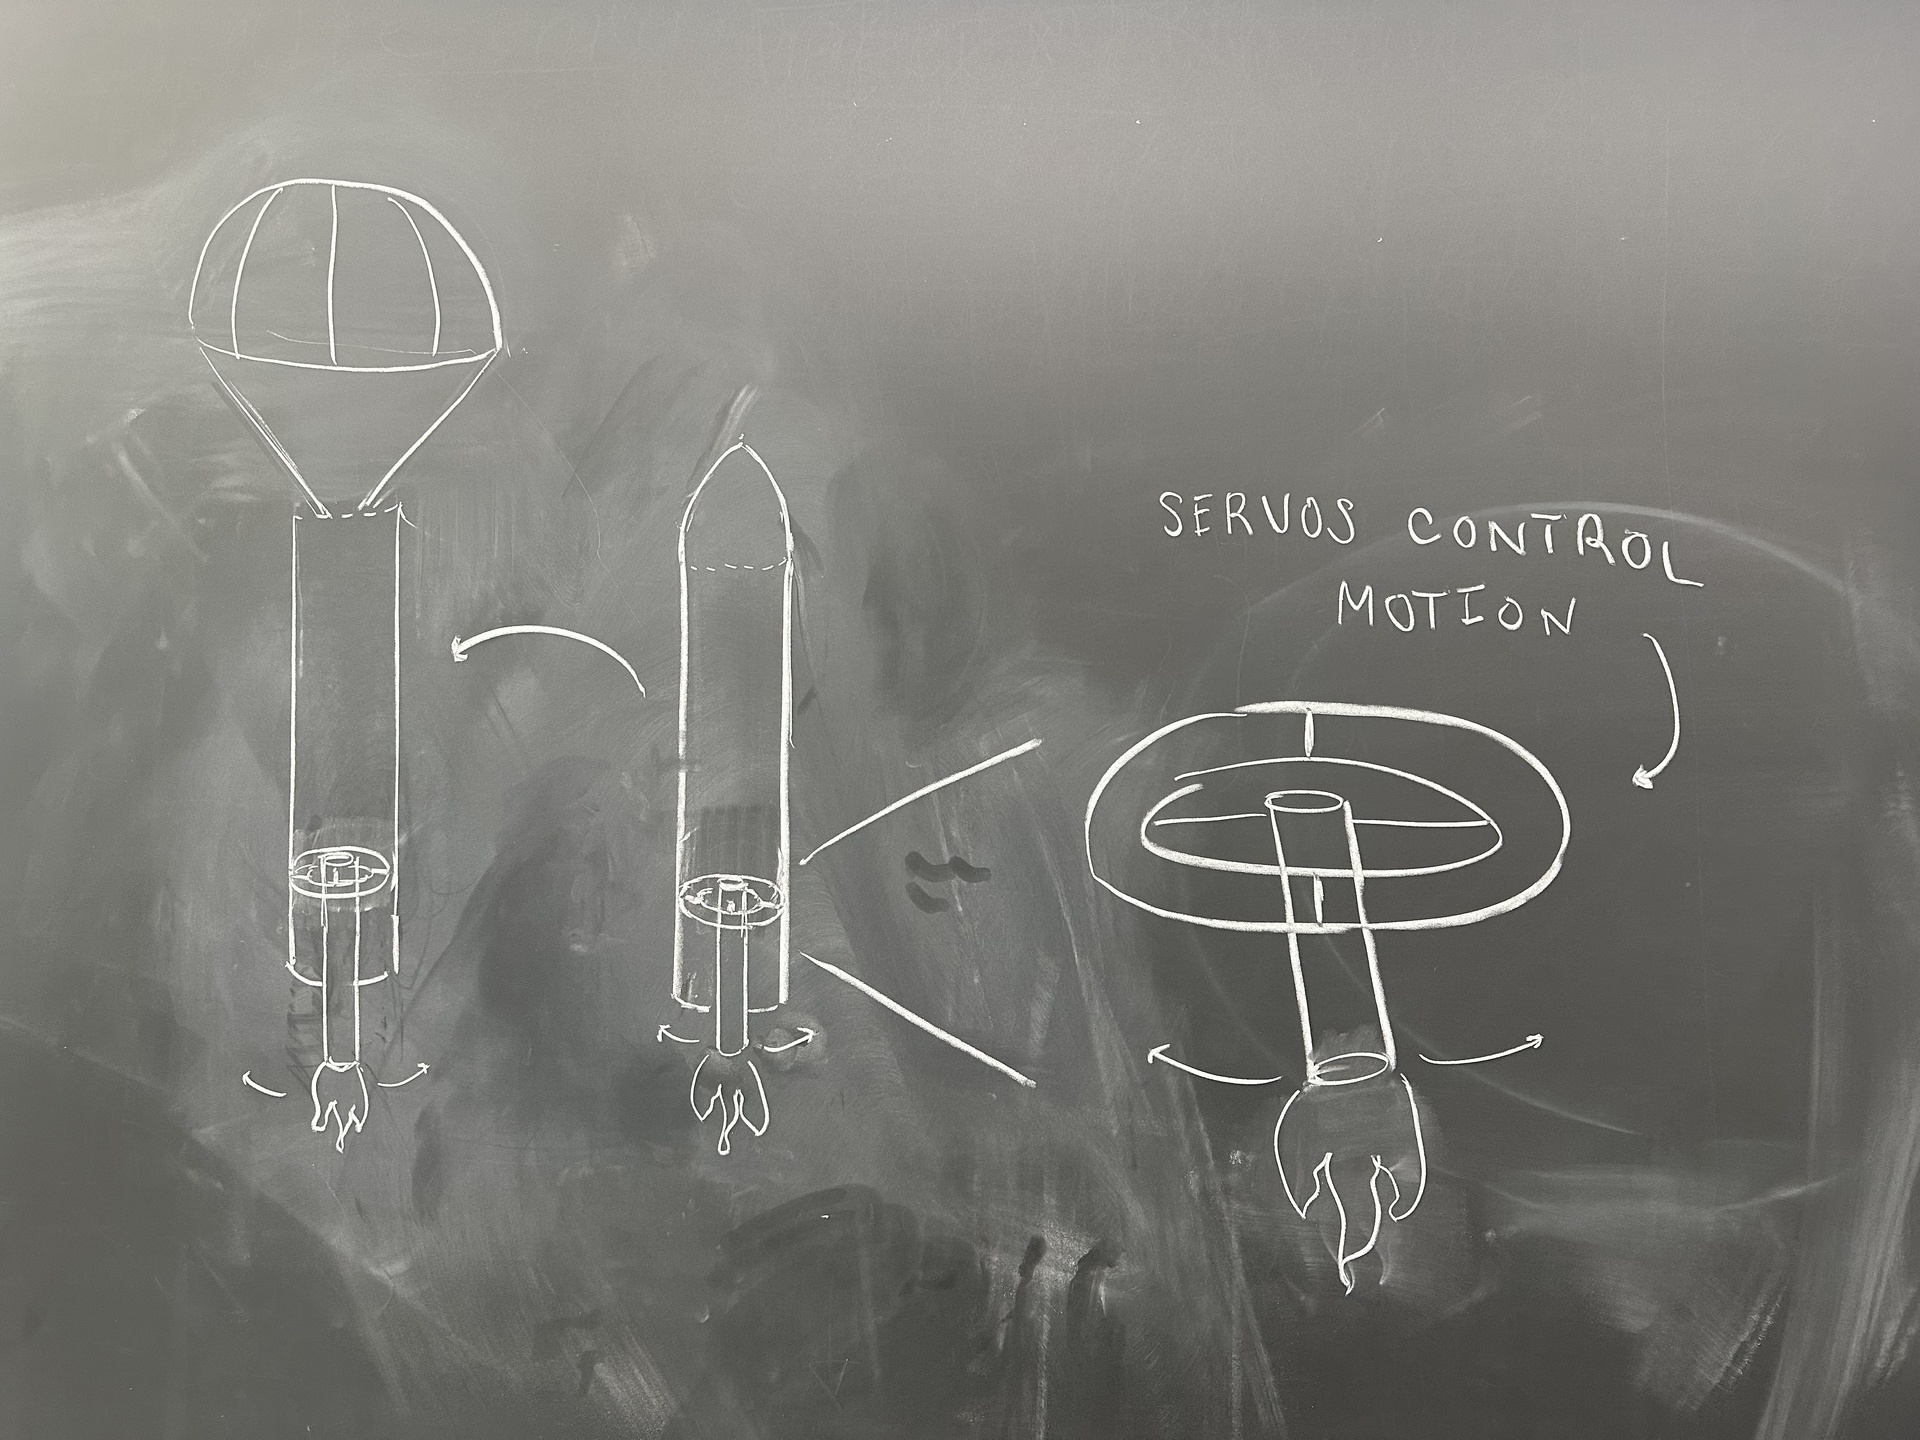 SERVOS CONTROL
MOTION